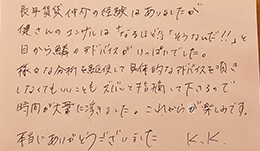 長年賃貸仲介の経験はありましたが
健さんのコンサルは "なるほどぅ そうなんだ!!" と
目から鱗なアドバイスがいっぱいでした。
様々な分析を駆使して具体的なアドバイスを頂
しなくてもいいこともズバッと指摘して下さるので
時間が大幅に浮きました。これからが楽しみです。
本当にありがとうございました K.K.